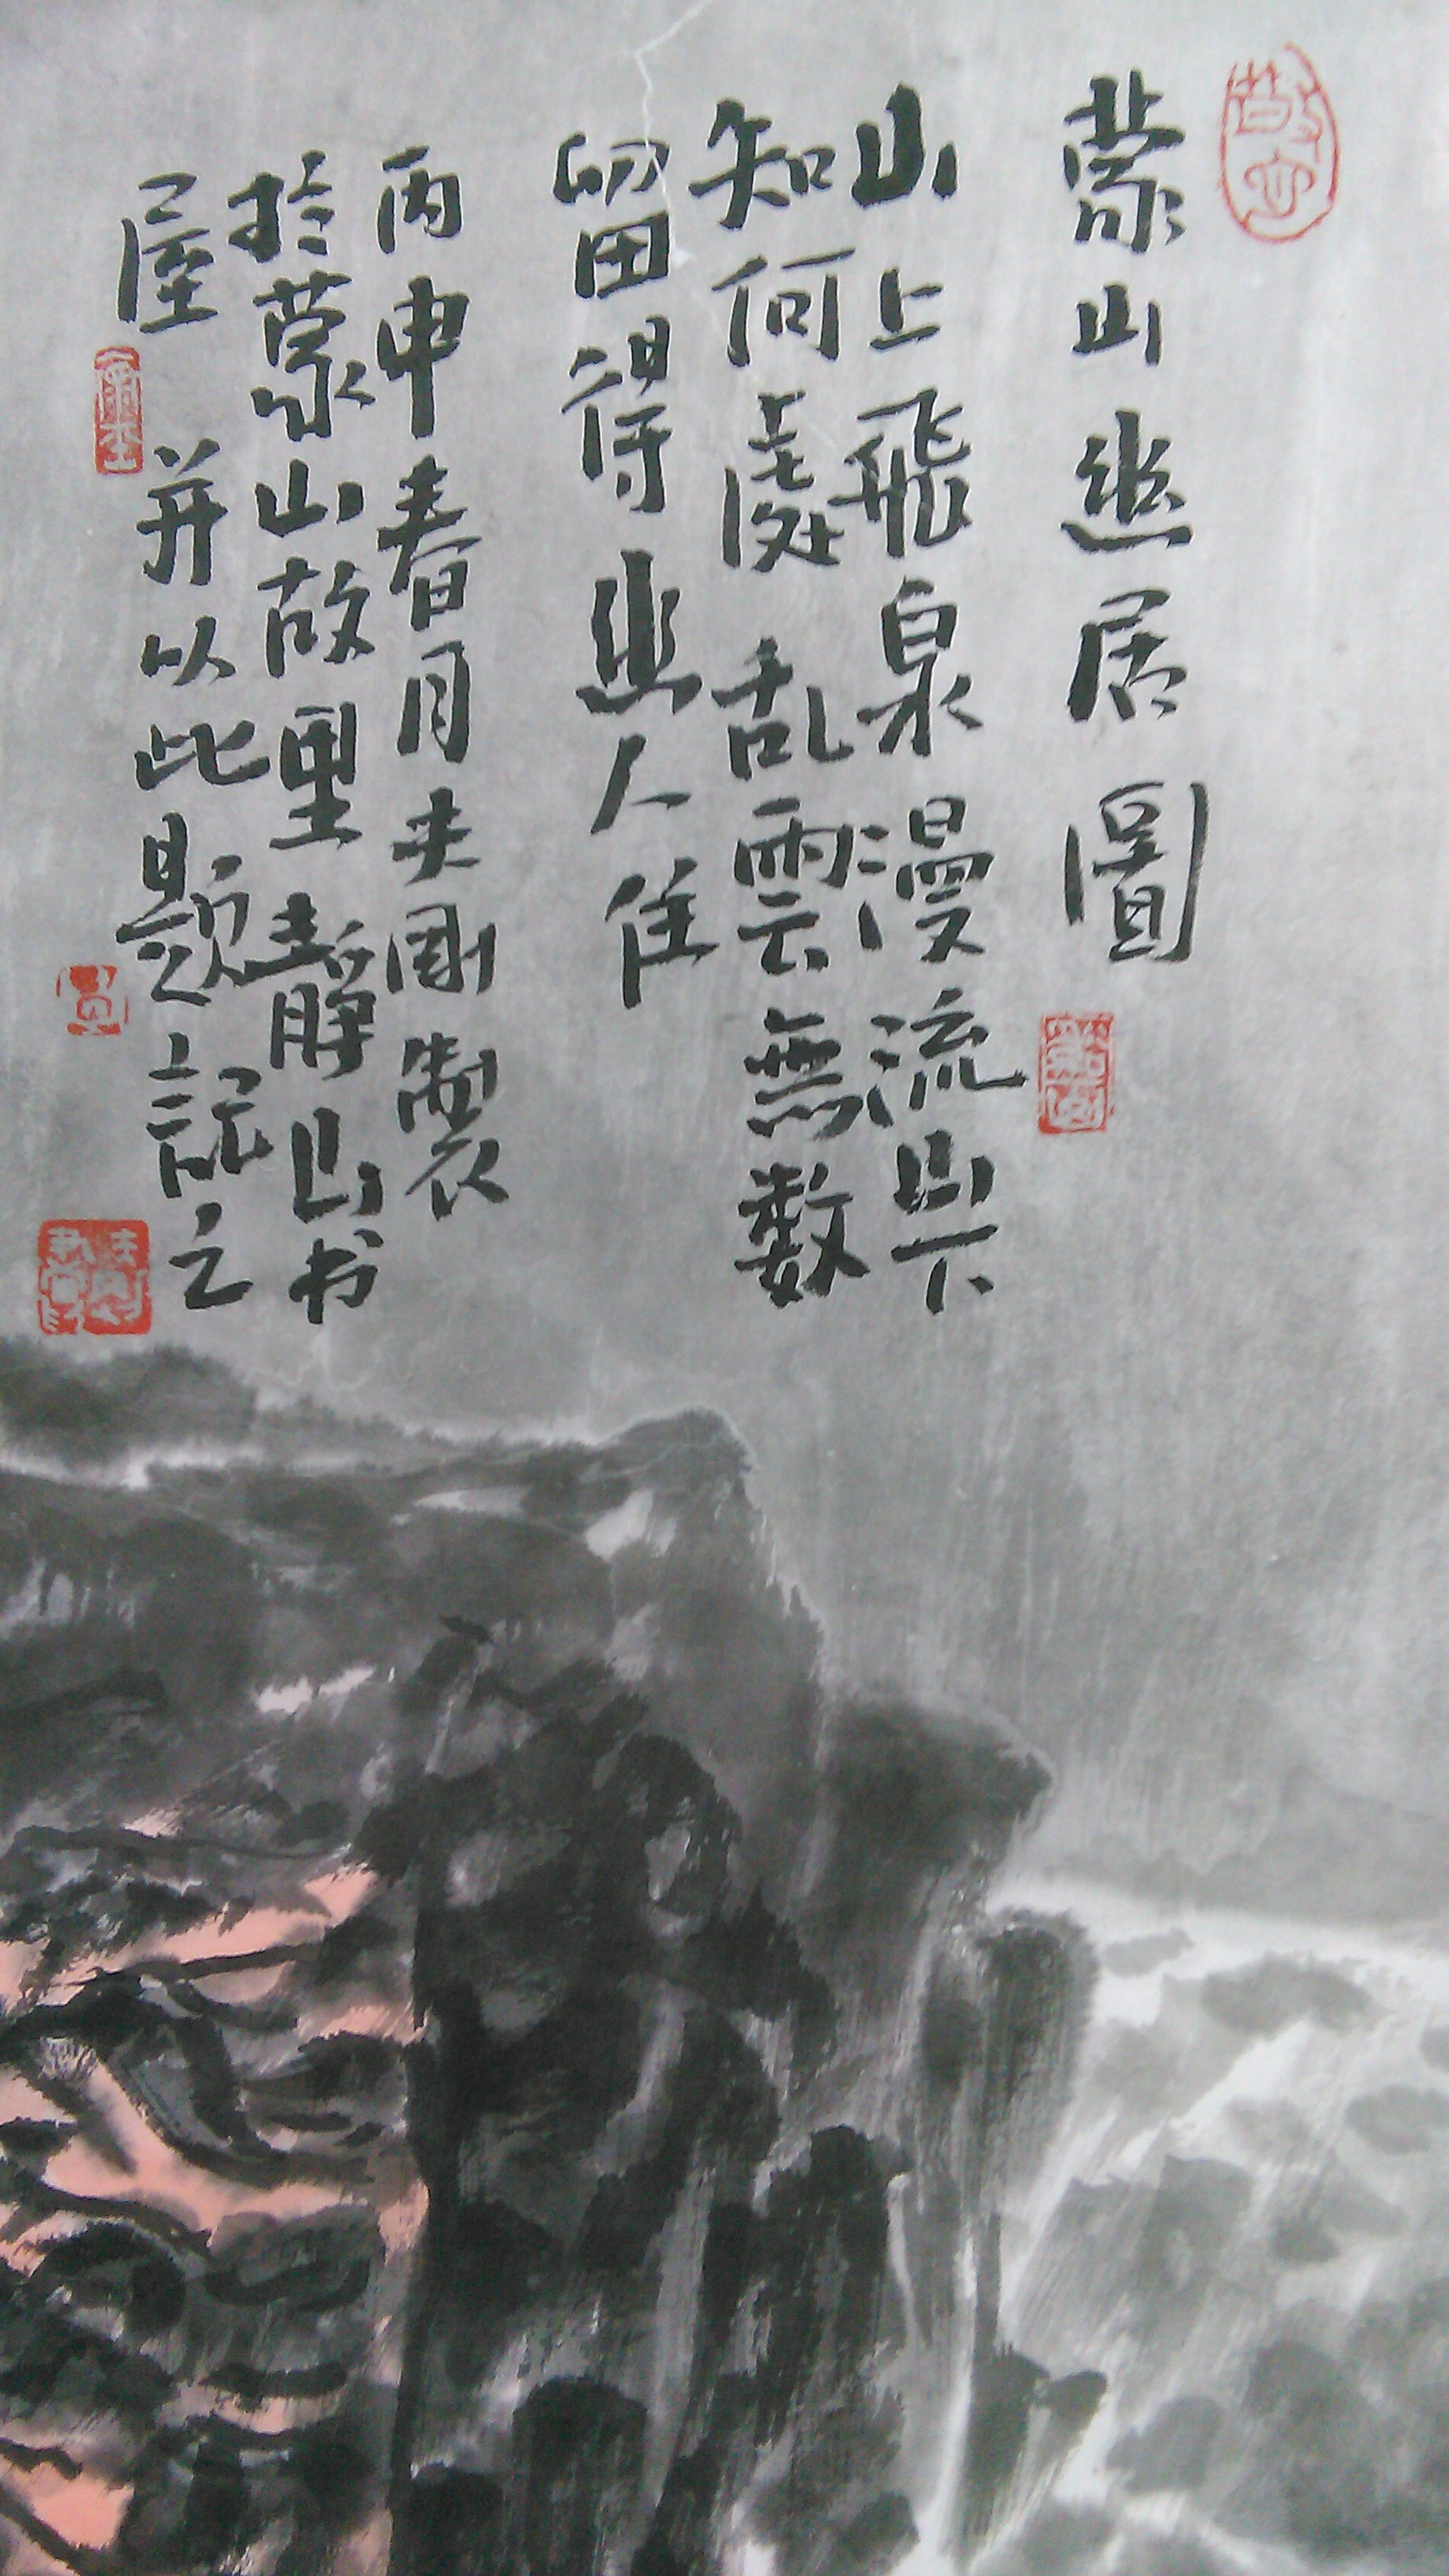 蒙山幽居圖
山上飛泉漫流山下
知何處乱雲無数
留得幽人住
丙申春月夫剛製
於蒙山故里静山书
屋并以此题記之